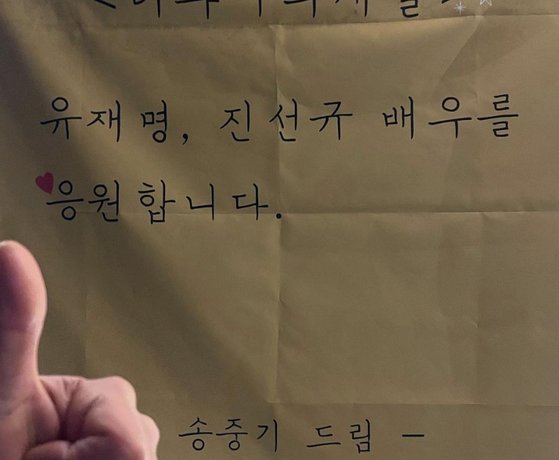 유재명, 진선규 배우를
응원합니다.
송중기 드림 -